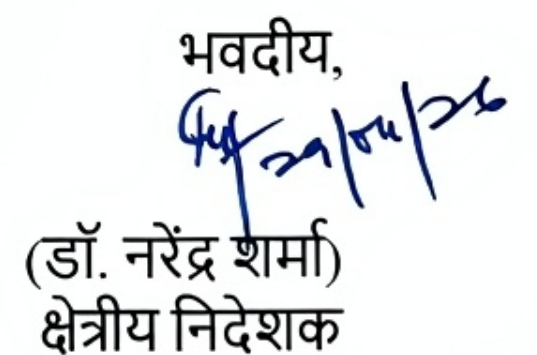 भवदीय,
29/04/26
(डॉ. नरेंद्र शर्मा)
क्षेत्रीय निदेशक